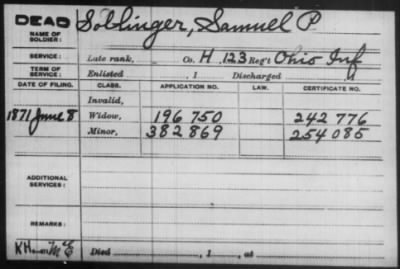 DEAD
NAME OF SOLDIER:
Soblinger, Samuel P.
SERVICE:
Late rank, Co. H, 123 Reg't Ohio Inf
TERM OF SERVICE:
Enlisted , 1 Discharged , 1
DATE OF FILING. CLASS. APPLICATION NO. LAW. CERTIFICATE NO.
Invalid,
1871 June 8 Widow, 196 750 242 776
Minor, 382 869 254 085
ADDITIONAL SERVICES:
REMARKS:
Died , 1 , at